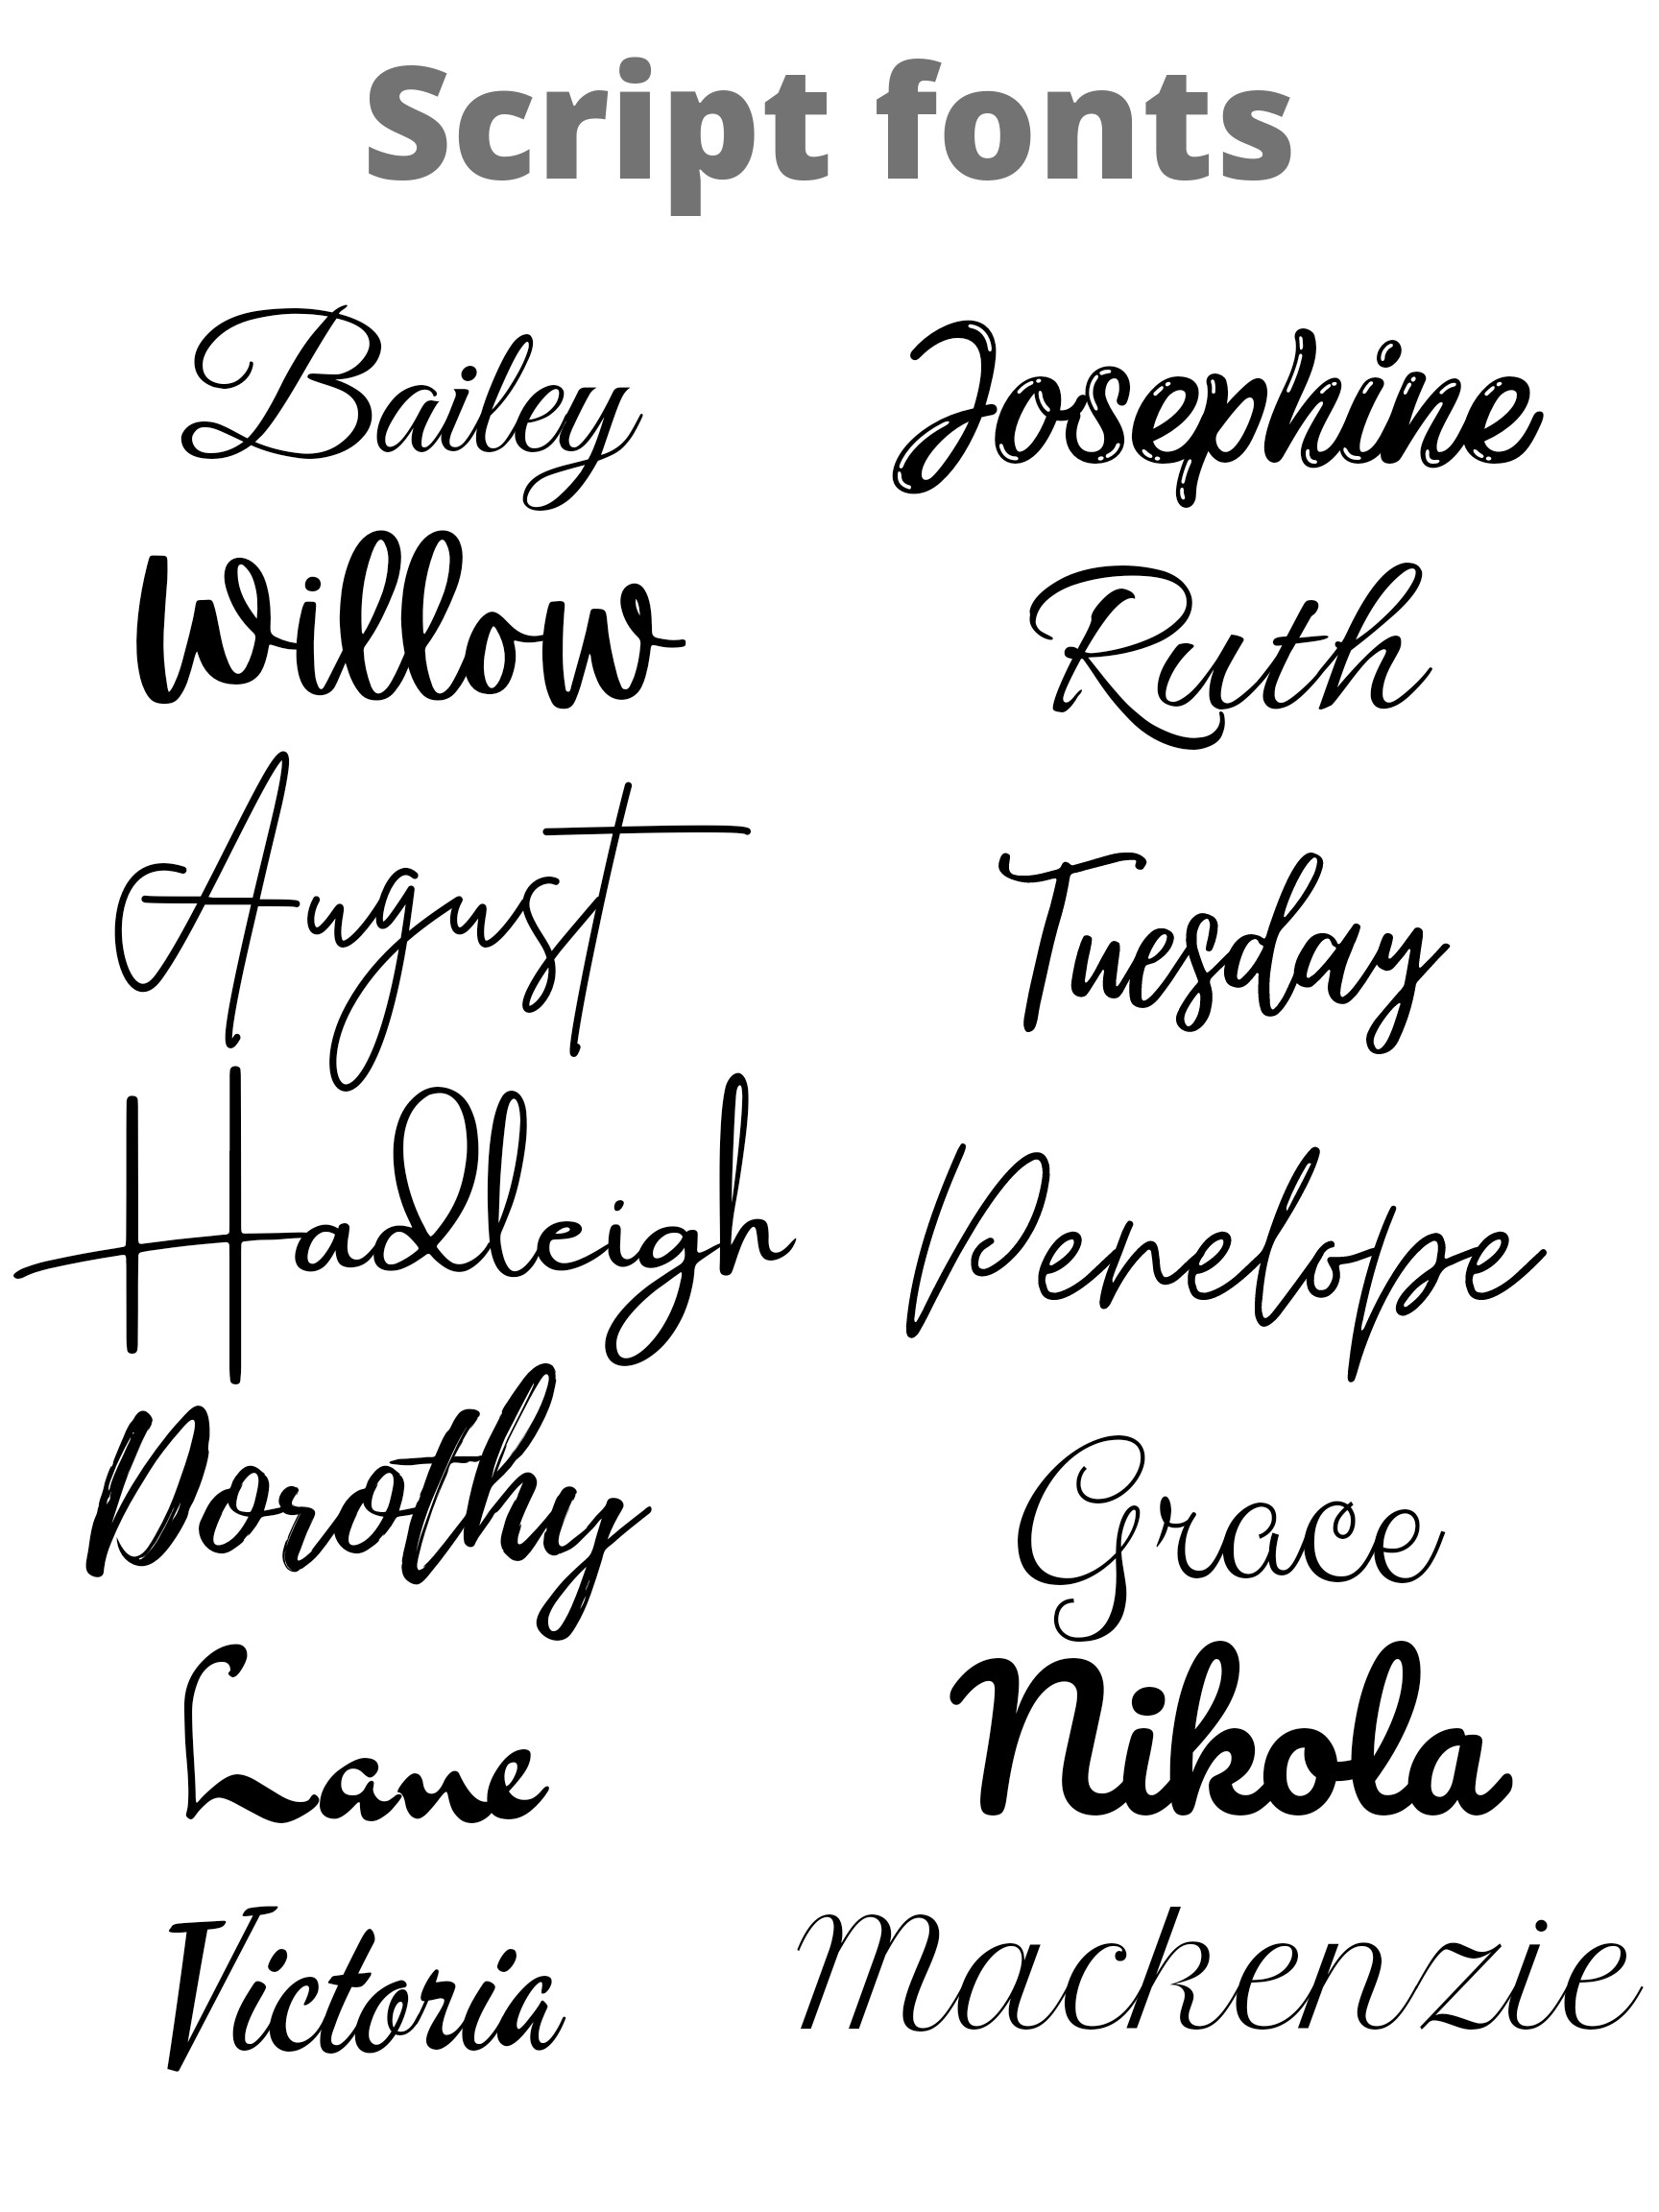 Script fonts
Bailey
Josephine
Willow
Ruth
August
Tuesday
Hadleigh
Penelope
Dorothy
Grace
Lane
Nikola
Victoria
Mackenzie